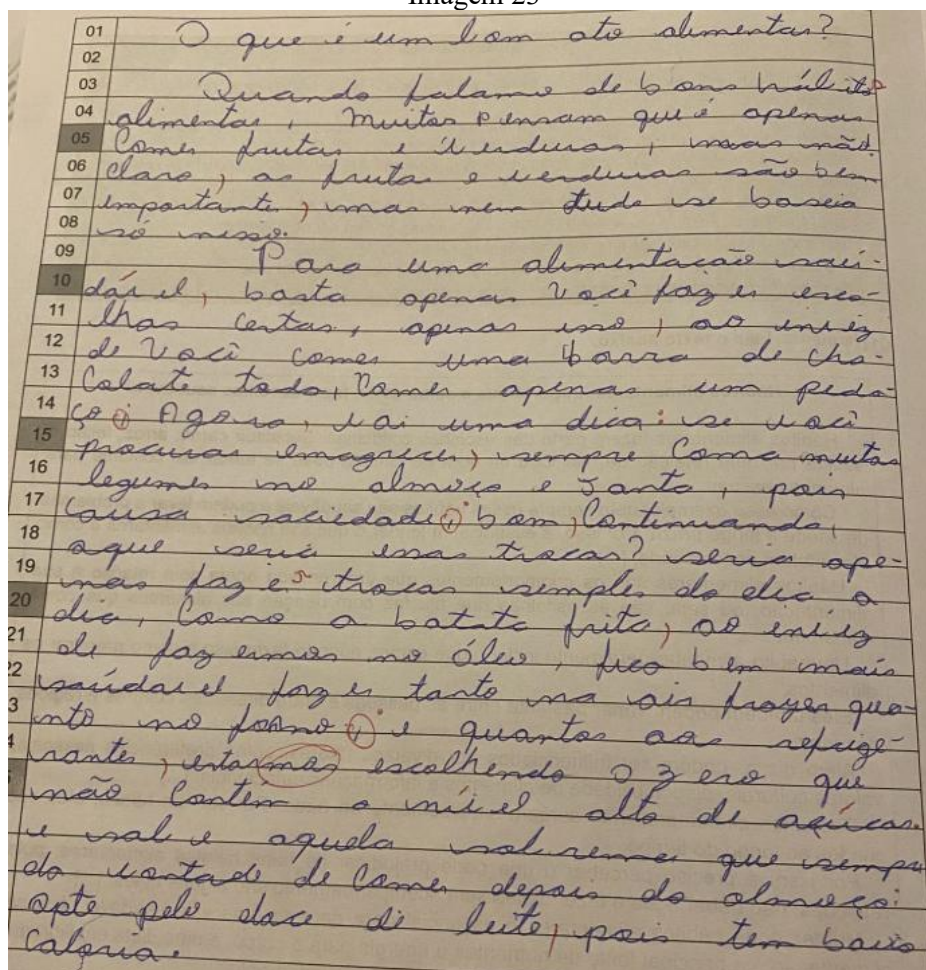 Imagem 23
01 O que é um bom ato alimentar?
02
03 Quando falamo de bons hábitos
04 alimentar, muitas pensam que é apenas
05 Comer frutas e verduras, mas não,
06 claro, as frutas e verduras são bem
07 importante, mas nem tudo se baseia
08 só nisso.
09 Para uma alimentação sau-
10 dável, basta apenas você fazer esco-
11 lhas certas, apenas isso, ao invez
12 de você comer uma barra de cho-
13 colate todo, comer apenas um peda-
14 ço; Agora, vai uma dica: se você
15 procura emagrecer, sempre coma muitos
16 legumes no almoço e Janta, pois
17 causa saciedade, bom, Continuando,
18 aque seria essas trocas? seria ape-
19 nas fazer trocas simples do dia a
20 dia, Como a batata frita, ao invez
21 de fazermos no óleo, fica bem mais
22 saúdavel fazer tanto na air frayer qua-
3 nto no forno, e quantos aos refrigé-
4 rantes, estarmos escolhendo o zero que
não contém o nível alto de açúcar
e sal e aquela sobremesa que sempre
da vontade de comer depois do almoço:
opte pelo doce de leite, pois tem baixo
caloria.